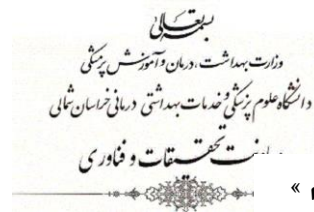 بسمه تعالی
وزارت بهداشت، درمان و آموزش پزشکی
دانشگاه علوم پزشکی و خدمات بهداشتی درمانی خراسان شمالی
تحقیقات و فناوری
»